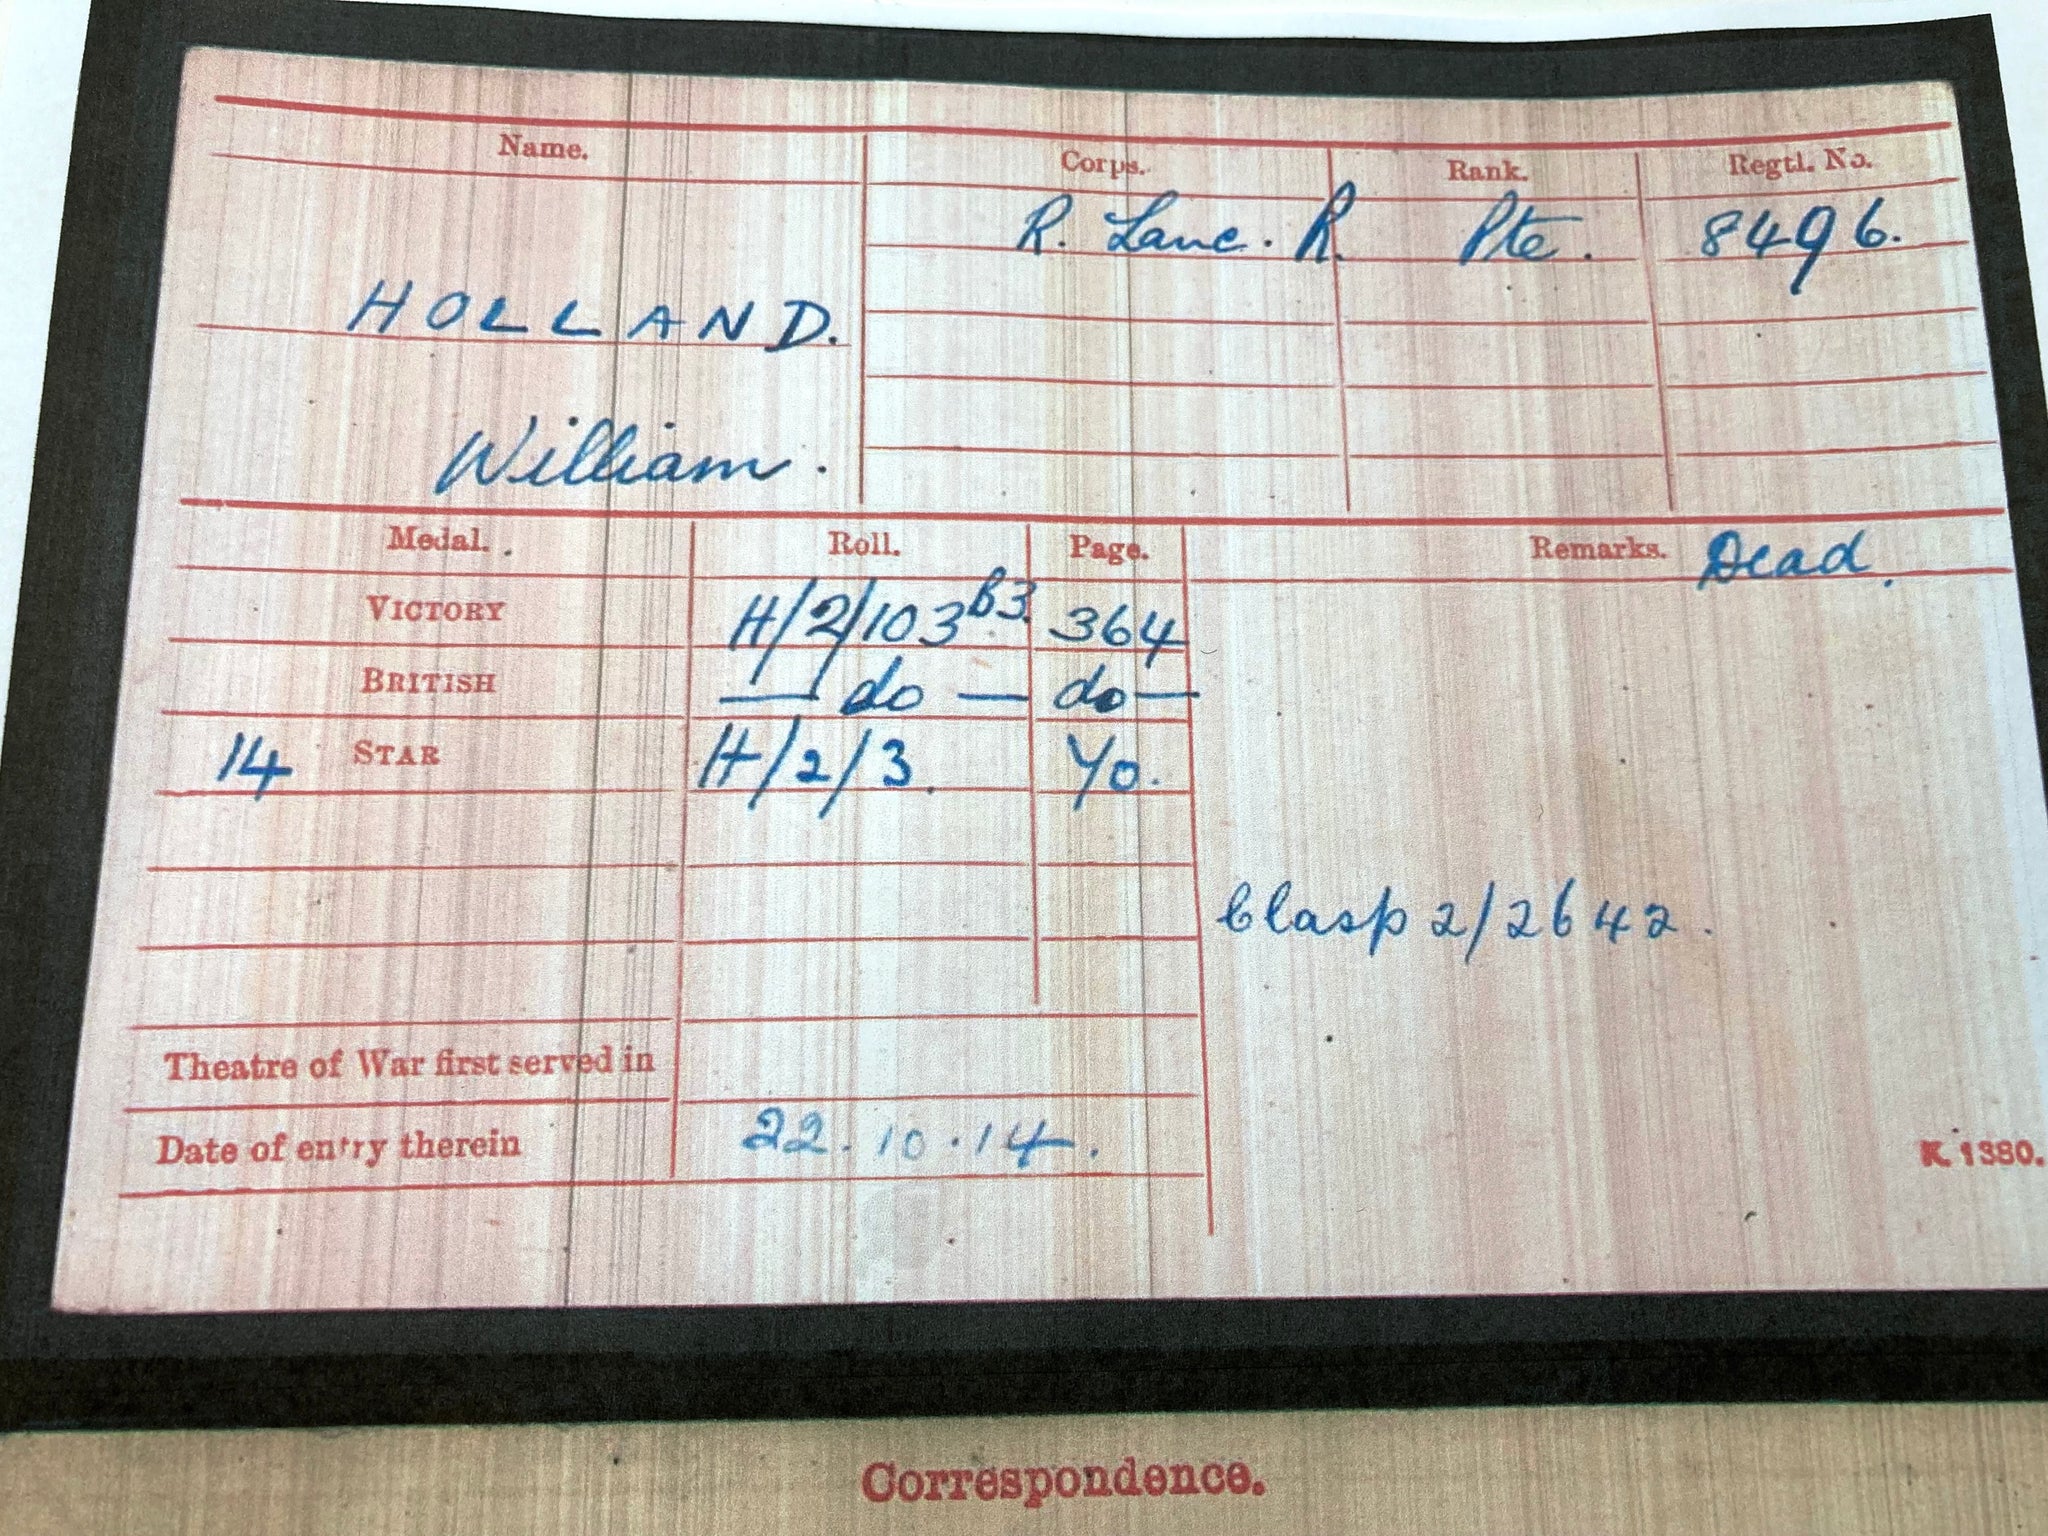 Name. Corps. Rank. Regtl. No.
R. Lanc. R. Pte. 8496.
HOLLAND.
William.
Medal. Roll. Page. Remarks. Dead.
VICTORY H/2/103 B3. 364
BRITISH — do — do —
14 STAR H/2/3. 70.
Clasp 2/2642.
Theatre of War first served in
Date of entry therein 22.10.14.
K. 1380.
Correspondence.